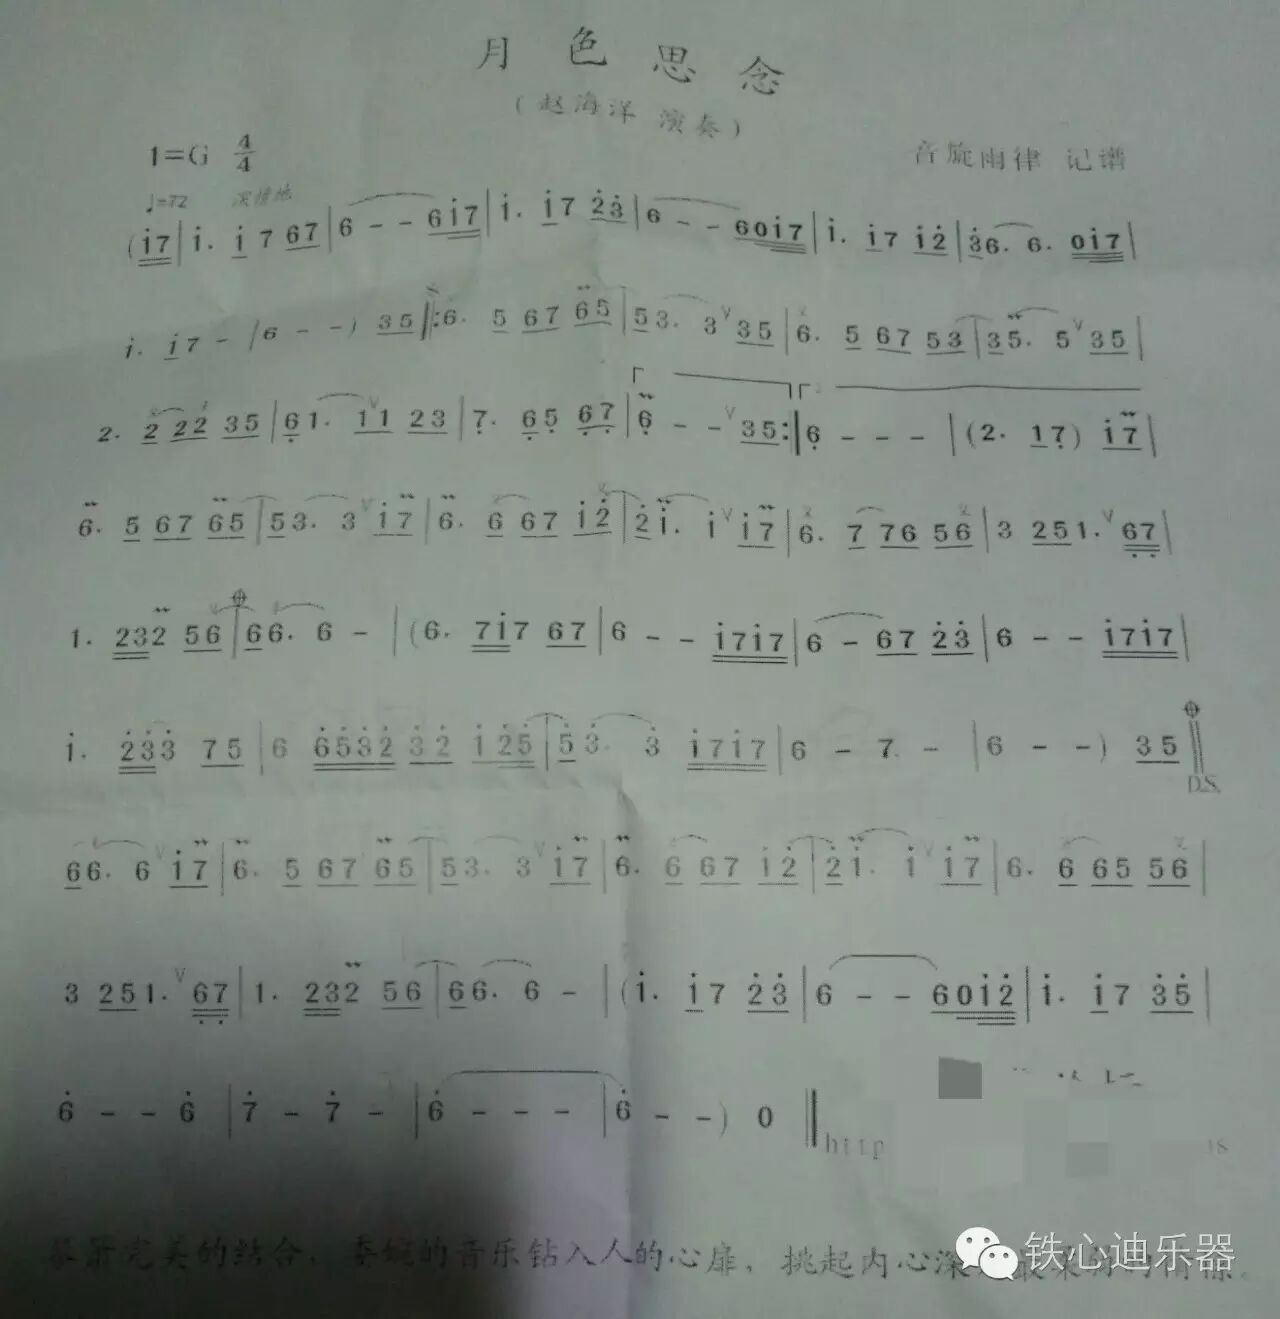 月色思念
(赵海洋 演奏)
1=G 4/4
音旋雨律 记谱
♩=72 深情地
(i7|i. i 7 67|6 - - 6i7|i. i7 2̇3̇|6 - - 60i7|i. i7 i2̇|3̇6. 6. 0i7|
i. i7 -|6 - -) 35‖:6. 5 67 65|53. 3 V 35|6. 5 67 53|35. 5 V 35|
2. 2 22 35|61. 11 23|7. 65 67|6 - - V 35:‖6 - - -|(2. 17) i7|
6. 5 67 65|53. 3 V i7|6. 6 67 i2̇|2̇i. i V i7|6. 7 76 56|3 251. V 67|
1. 232 56|66. 6 -|(6. 7i7 67|6 - - i7i7|6 - 67 2̇3̇|6 - - i7i7|
i. 2̇3̇3̇ 75|6 6̇5̇3̇2̇ 3̇2̇ i2̇5̇|5̇3̇. 3̇ i7i7|6 - 7. -|6 - -) 35‖
D.S.
66. 6 V i7|6. 5 67 65|53. 3 V i7|6. 6 67 i2̇|2̇i. i V i7|6. 6 65 56|
3 251. V 67|1. 232 56|66. 6 -|(i. i7 2̇3̇|6 - - 60i2̇|i. i7 3̇5̇|
6̇ - - 6̇|7̇ - 7̇ -|6̇ - - -|6̇ - -) 0‖
http
完美的结合、委婉的音乐钻入人的心扉，挑起内心深
铁心迪乐器